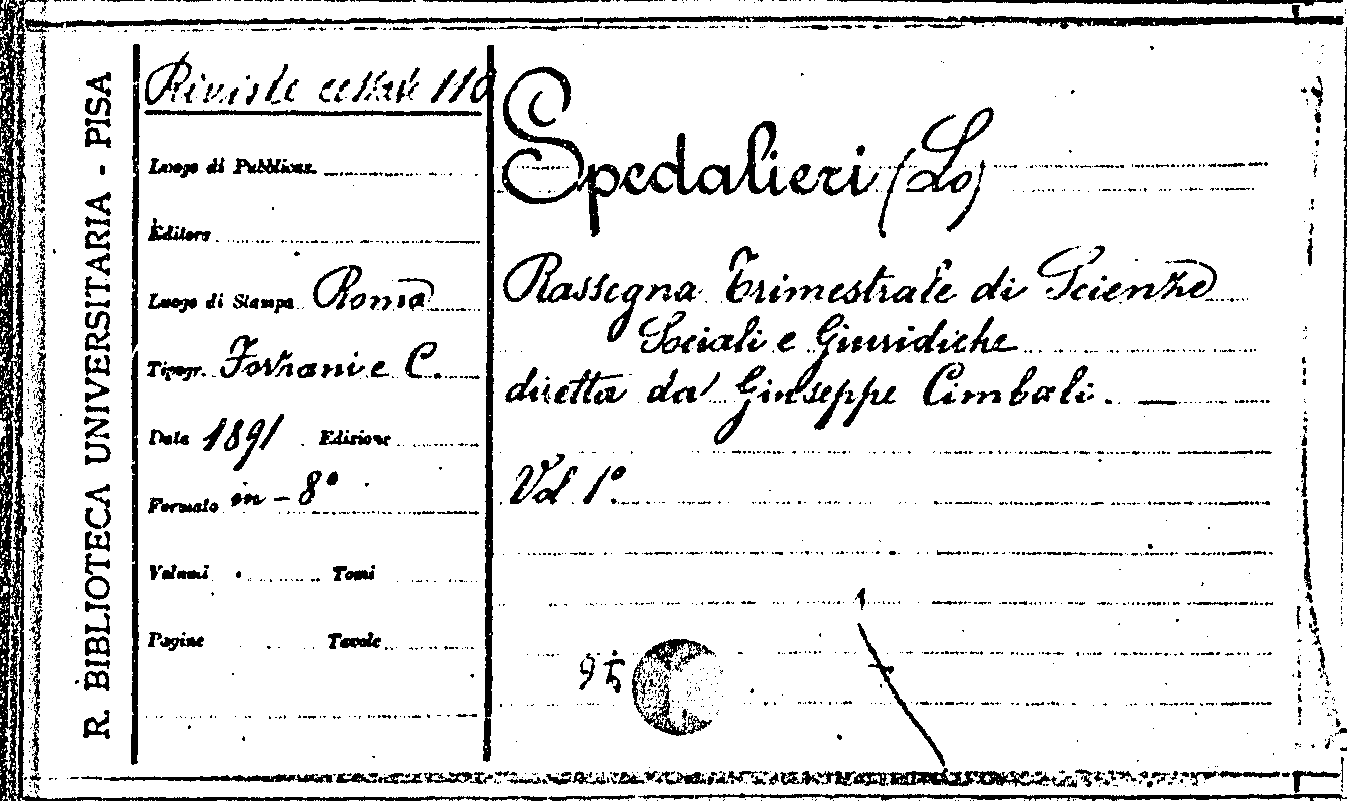 R. BIBLIOTECA UNIVERSITARIA - PISA
Riviste cessate 110
Luogo di Pubblicaz.
Editore
Luogo di Stampa Roma
Tipogr. Forzani e C.
Data 1891 Edizione
Formato in - 8°
Volumi Tomi
Pagine Tavole
Spedalieri (Lo)
Rassegna Trimestrale di Scienze
Sociali e Giuridiche
diretta da Giuseppe Cimbali. —
Vol 1°.